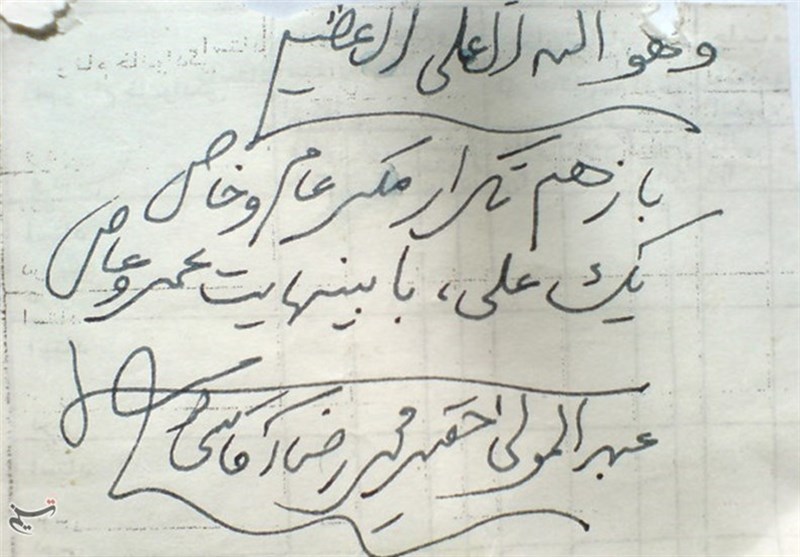 وهو الله العلی العظیم
باز هم تکرار مکر عام و خاص
یک علی، با بینهایت عمر و عاص
عبد المولی احقر محمد رضا آقاسی